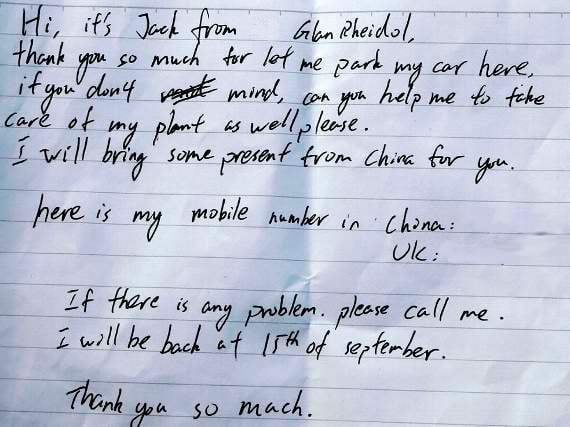 Hi, it's Jack from GlanRheidol,
thank you so much for let me park my car here,
if you don4 mind, can you help me to take
care of my plant as well please.
I will bring some present from China for you.
here is my mobile number in China:
UK:
If there is any problem. please call me.
I will be back at 15th of september.
Thank you so mach.